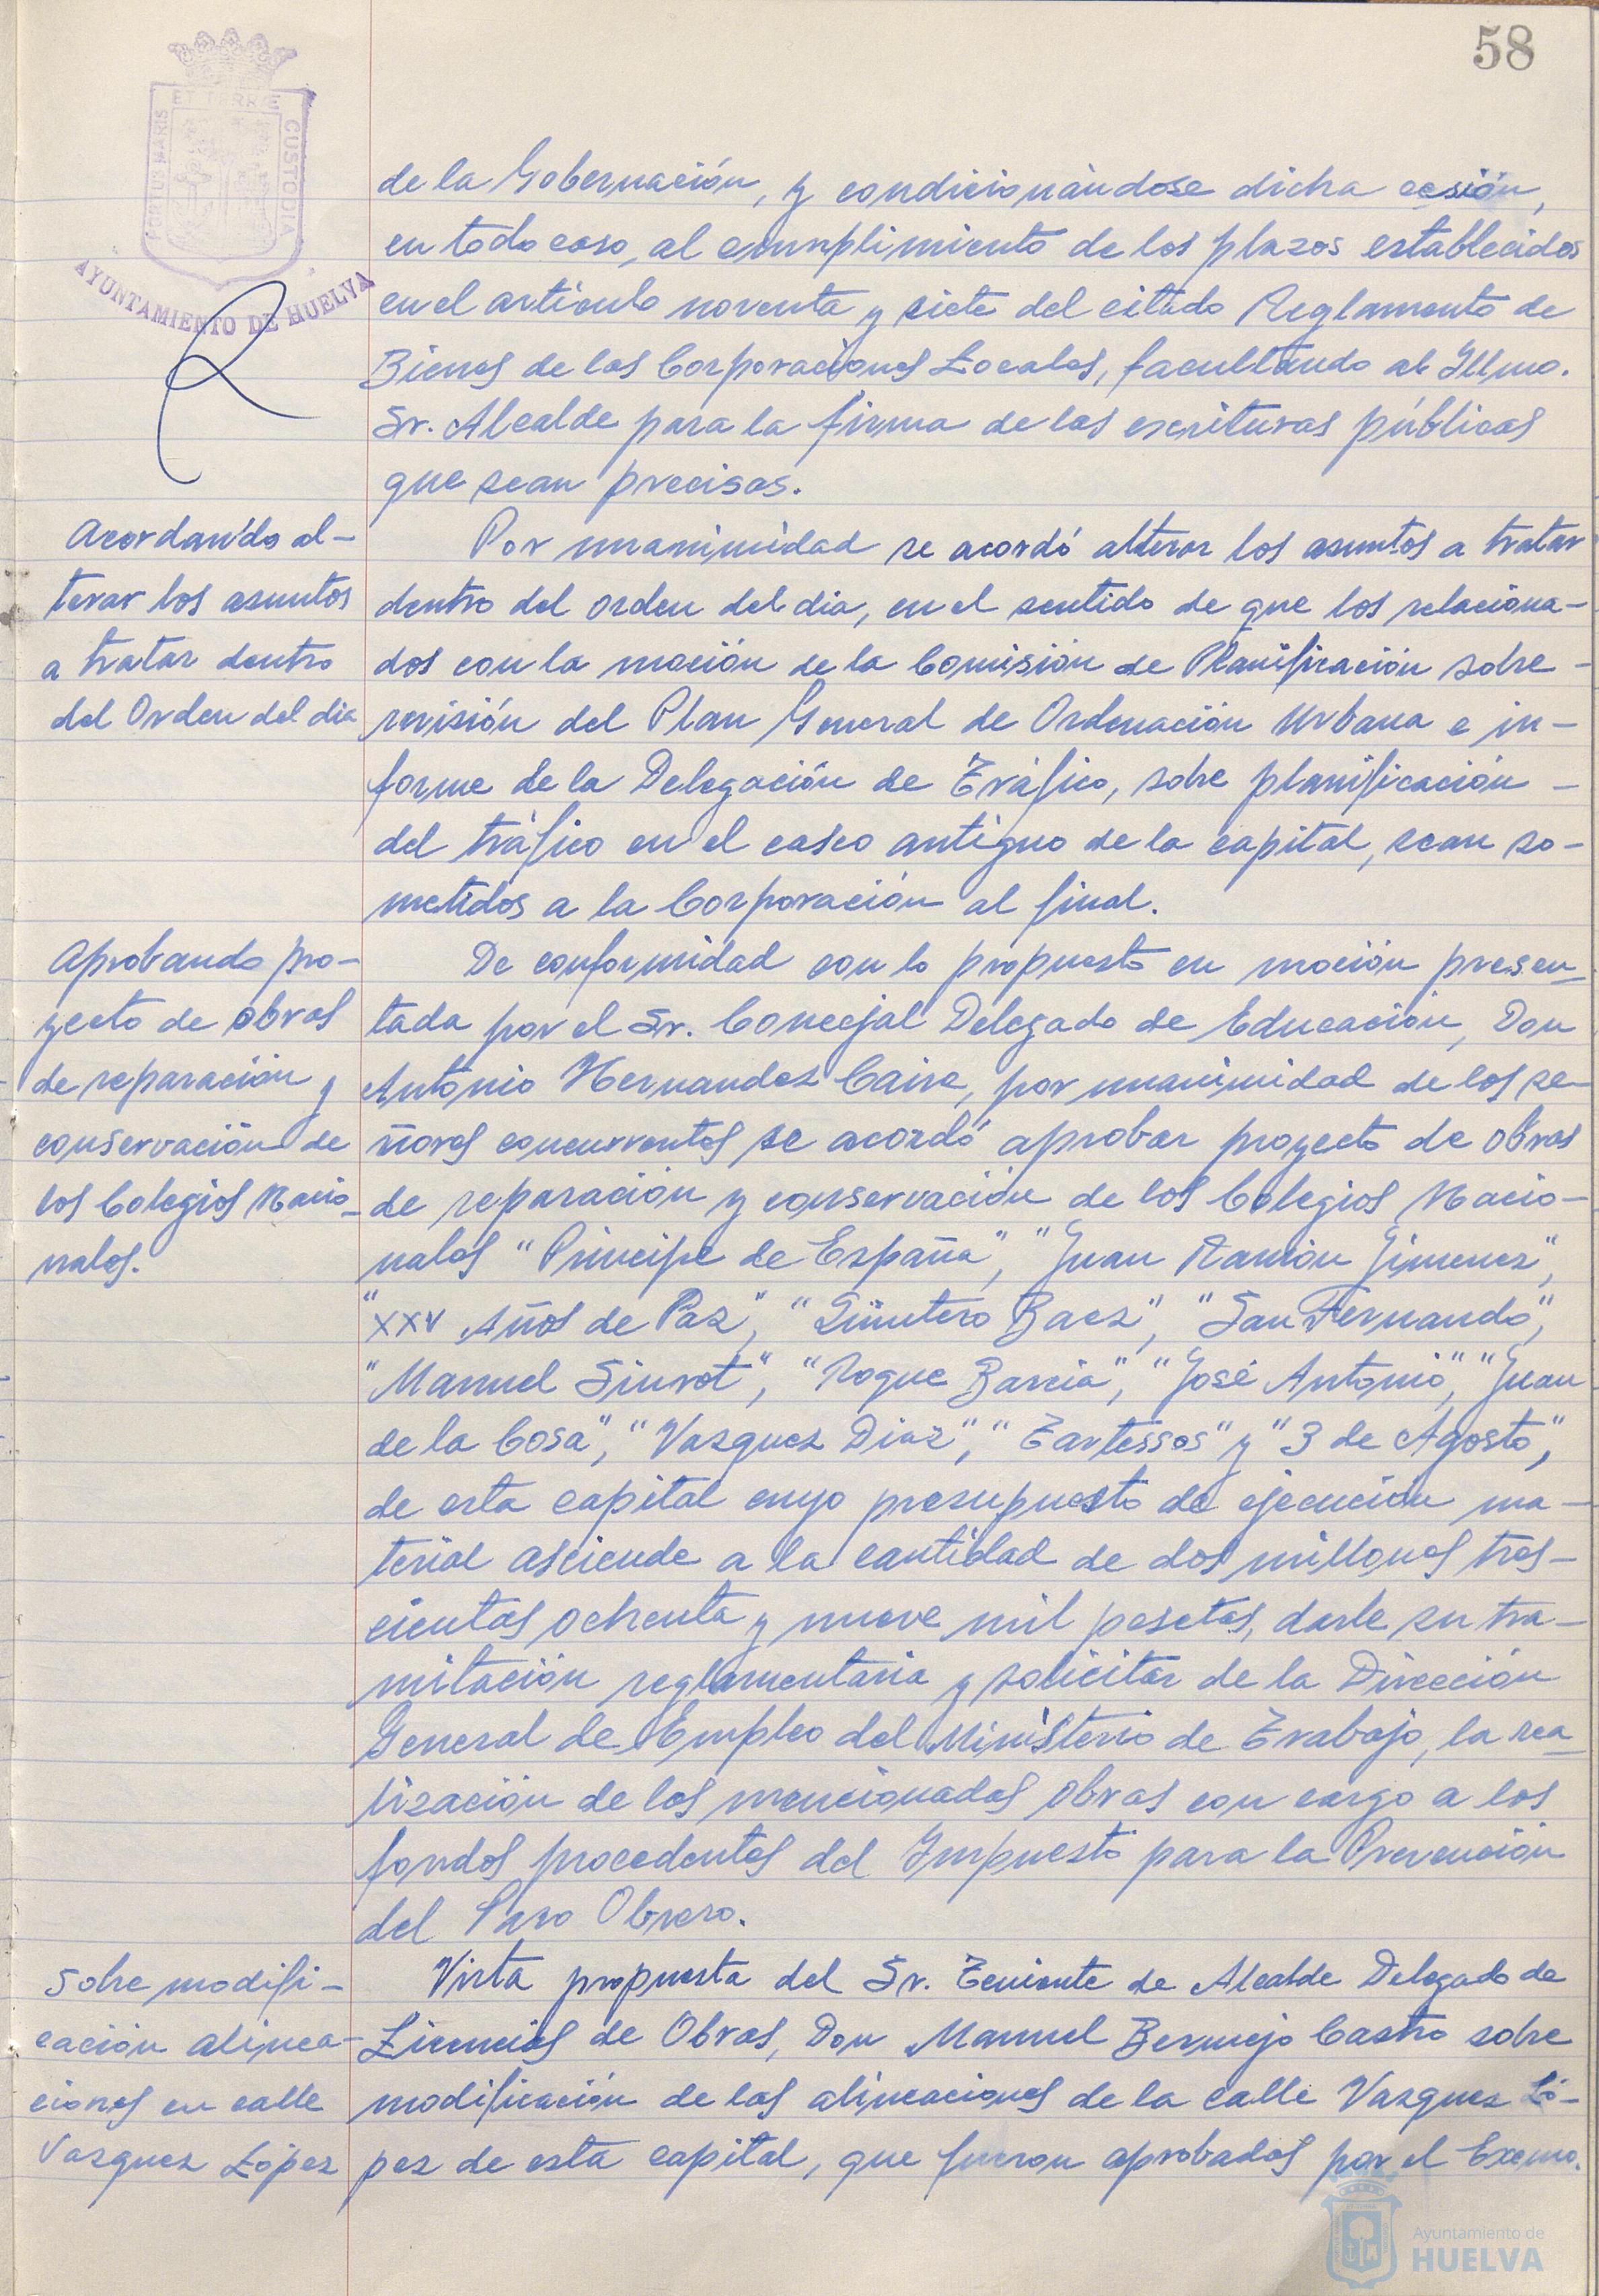 58
ET TERRE
PORTUS MARIS
CUSTODIA
AYUNTAMIENTO DE HUELVA
de la Gobernación, y condicionándose dicha cesión,
en todo caso, al cumplimiento de los plazos establecidos
en el artículo noventa y siete del citado Reglamento de
Bienes de las Corporaciones Locales, facultando al Illmo.
Sr. Alcalde para la firma de las escrituras públicas
que sean precisas.
Acordando al-
terar los asuntos
a tratar dentro
del Orden del dia
Por unanimidad se acordó alterar los asuntos a tratar
dentro del orden del dia, en el sentido de que los relaciona-
dos con la moción de la Comisión de Planificación sobre -
revisión del Plan General de Ordenación Urbana e in-
forme de la Delegación de Tráfico, sobre planificación -
del tráfico en el casco antiguo de la capital, sean so-
metidos a la Corporación al final.
Aprobando pro-
yecto de obras
de reparación y
conservación de
los Colegios Nacio-
nales.
De conformidad con lo propuesto en moción presen-
tada por el Sr. Concejal Delegado de Educación, Don
Antonio Hernandez Caire, por unanimidad de los se-
ñores concurrentes se acordó aprobar proyecto de obras
de reparación y conservación de los Colegios Nacio-
nales "Principe de España", "Juan Ramón Jimenez",
"XXV Años de Paz", "Quintero Baez", "San Fernando",
"Manuel Siurot", "Roque Barcia", "José Antonio", "Juan
de la Cosa", "Vazquez Diaz", "Tartessos" y "3 de Agosto",
de esta capital cuyo presupuesto de ejecución ma-
terial asciende a la cantidad de dos millones tres-
cientas ochenta y nueve mil pesetas, darle su tra-
mitación reglamentaria y solicitar de la Dirección
General de Empleo del Ministerio de Trabajo, la rea-
lización de las mencionadas obras con cargo a los
fondos procedentes del Impuesto para la Prevención
del Paro Obrero.
Sobre modifi-
cación alinea-
ciones en calle
Vazquez López
Vista propuesta del Sr. Teniente de Alcalde Delegado de
Licencias de Obras, Don Manuel Bermejo Castro sobre
modificación de las alineaciones de la calle Vazquez Ló-
pez de esta capital, que fueron aprobadas por el Excmo.
Ayuntamiento de
HUELVA